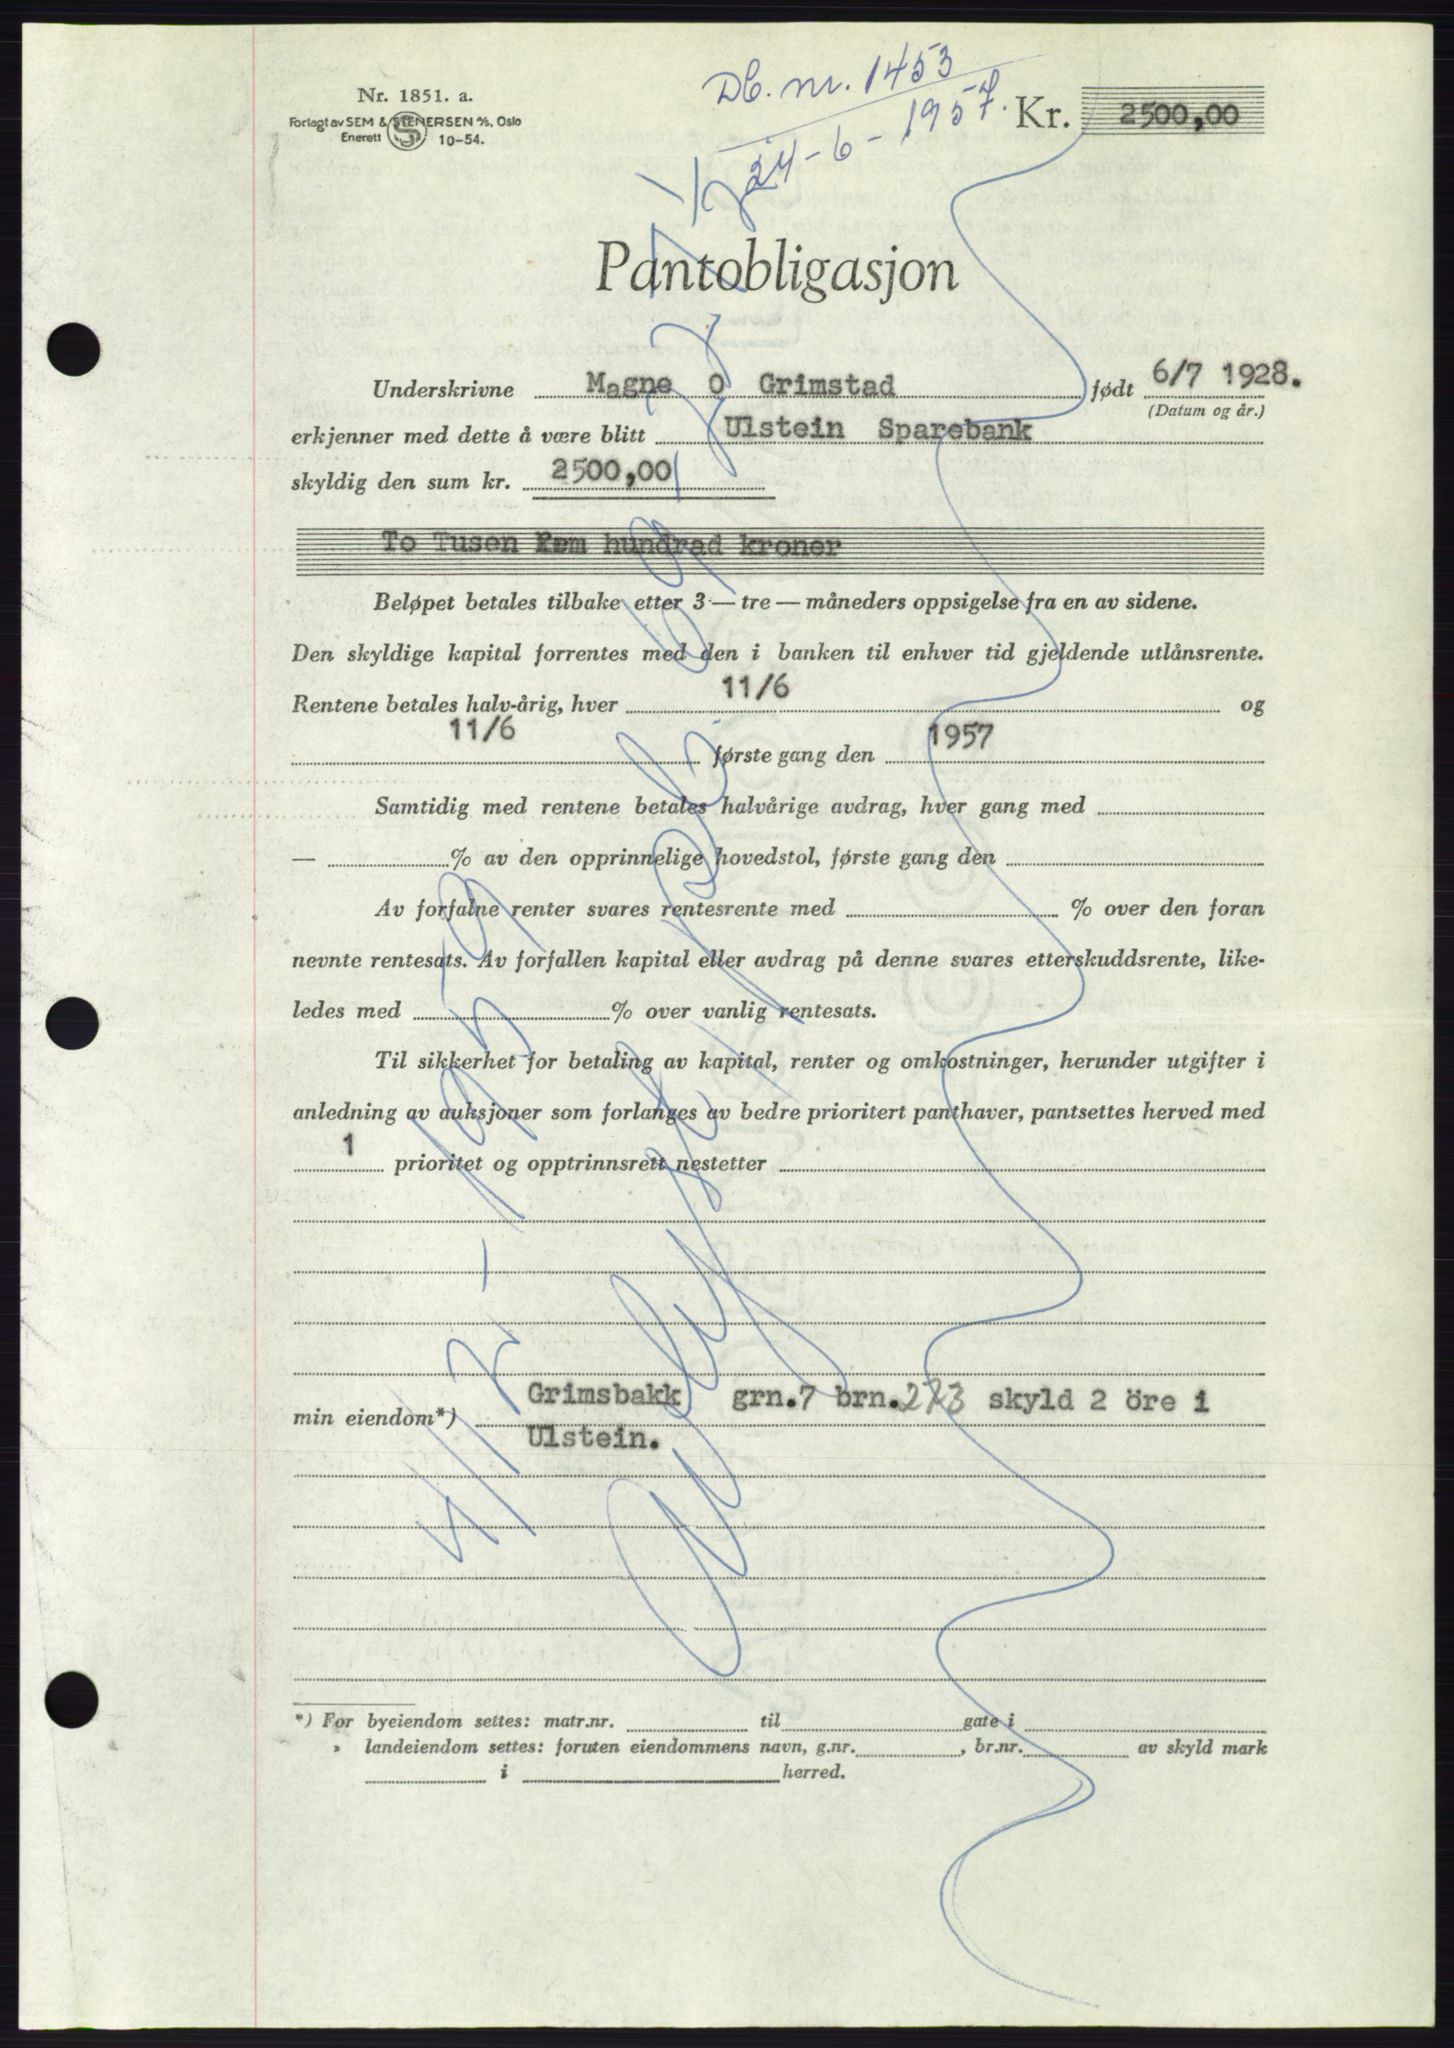 Db. nr. 1453
24-6-1957.
Nr. 1851. a.
Forlagt av SEM & STENERSEN A/S, Oslo
Enerett S 10-54.
Kr. 2500,00
Pantobligasjon
Underskrivne Magne O Grimstad født 6/7 1928.
(Datum og år.)
erkjenner med dette å være blitt Ulstein Sparebank
skyldig den sum kr. 2500,00
To Tusen Fem hundrad kroner
Beløpet betales tilbake etter 3 — tre — måneders oppsigelse fra en av sidene.
Den skyldige kapital forrentes med den i banken til enhver tid gjeldende utlånsrente.
Rentene betales halv-årig, hver 11/6 og
11/6 første gang den 1957
Samtidig med rentene betales halvårige avdrag, hver gang med
— % av den opprinnelige hovedstol, første gang den
Av forfalne renter svares rentesrente med % over den foran
nevnte rentesats. Av forfallen kapital eller avdrag på denne svares etterskuddsrente, like-
ledes med % over vanlig rentesats.
Til sikkerhet for betaling av kapital, renter og omkostninger, herunder utgifter i
anledning av auksjoner som forlanges av bedre prioritert panthaver, pantsettes herved med
1 prioritet og opptrinnsrett nestetter
min eiendom*) Grimsbakk grn.7 brn.273 skyld 2 öre i
Ulstein.
Avlyst
*) For byeiendom settes: matr.nr. til gate i
» landeiendom settes: foruten eiendommens navn, g.nr. , br.nr. av skyld mark
i herred.